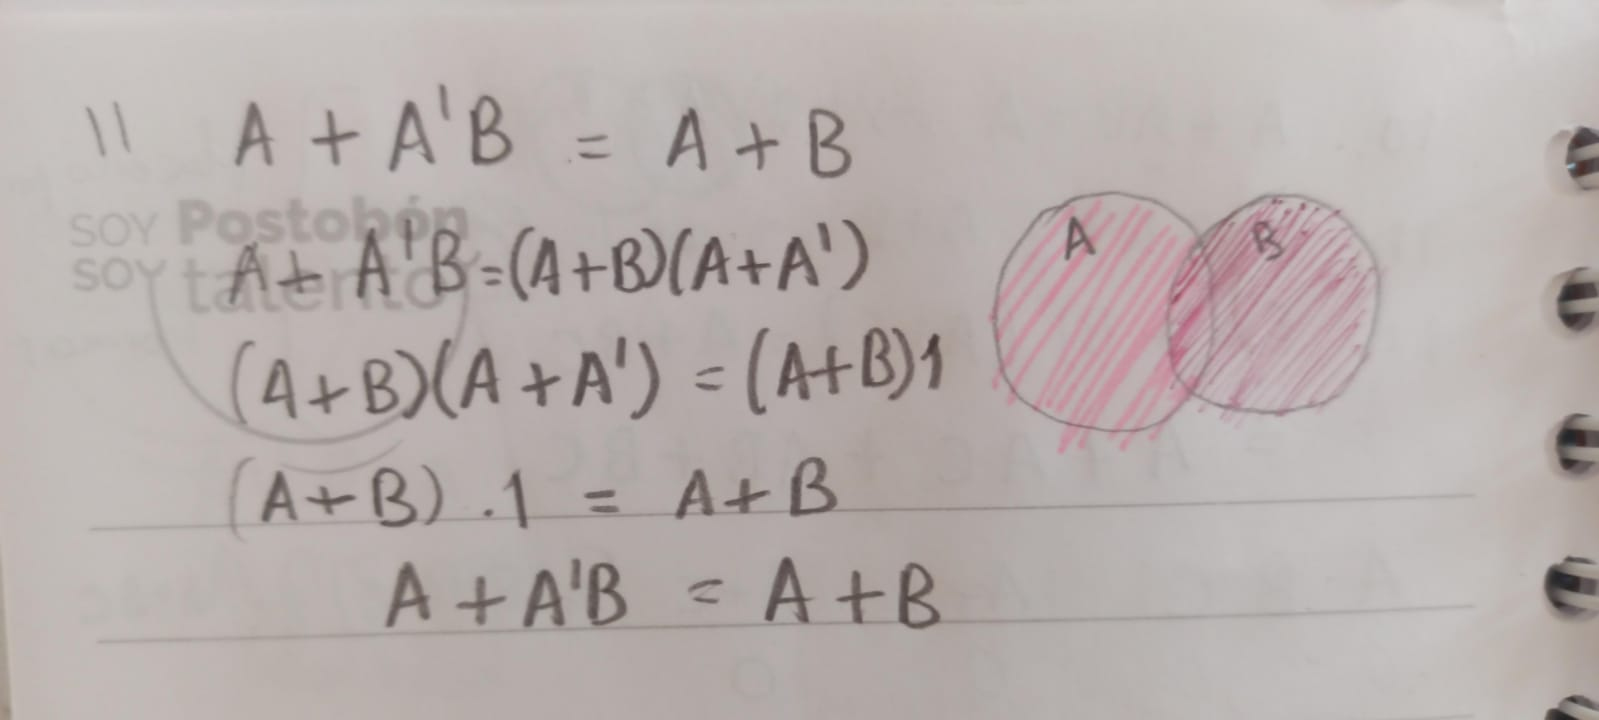 11 A + A'B = A + B
SOY Postobón
SOY talento
A + A'B = (A+B)(A+A')
(A+B)(A+A') = (A+B)1
(A+B) . 1 = A+B
A + A'B = A + B
A
B